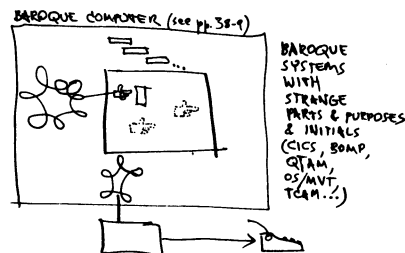 BAROQUE COMPUTER (see pp. 38-9)
...
BAROQUE
SYSTEMS
WITH
STRANGE
PARTS & PURPOSES
& INITIALS
(CICS, BOMP,
QTAM,
OS/MVT,
TCAM...)